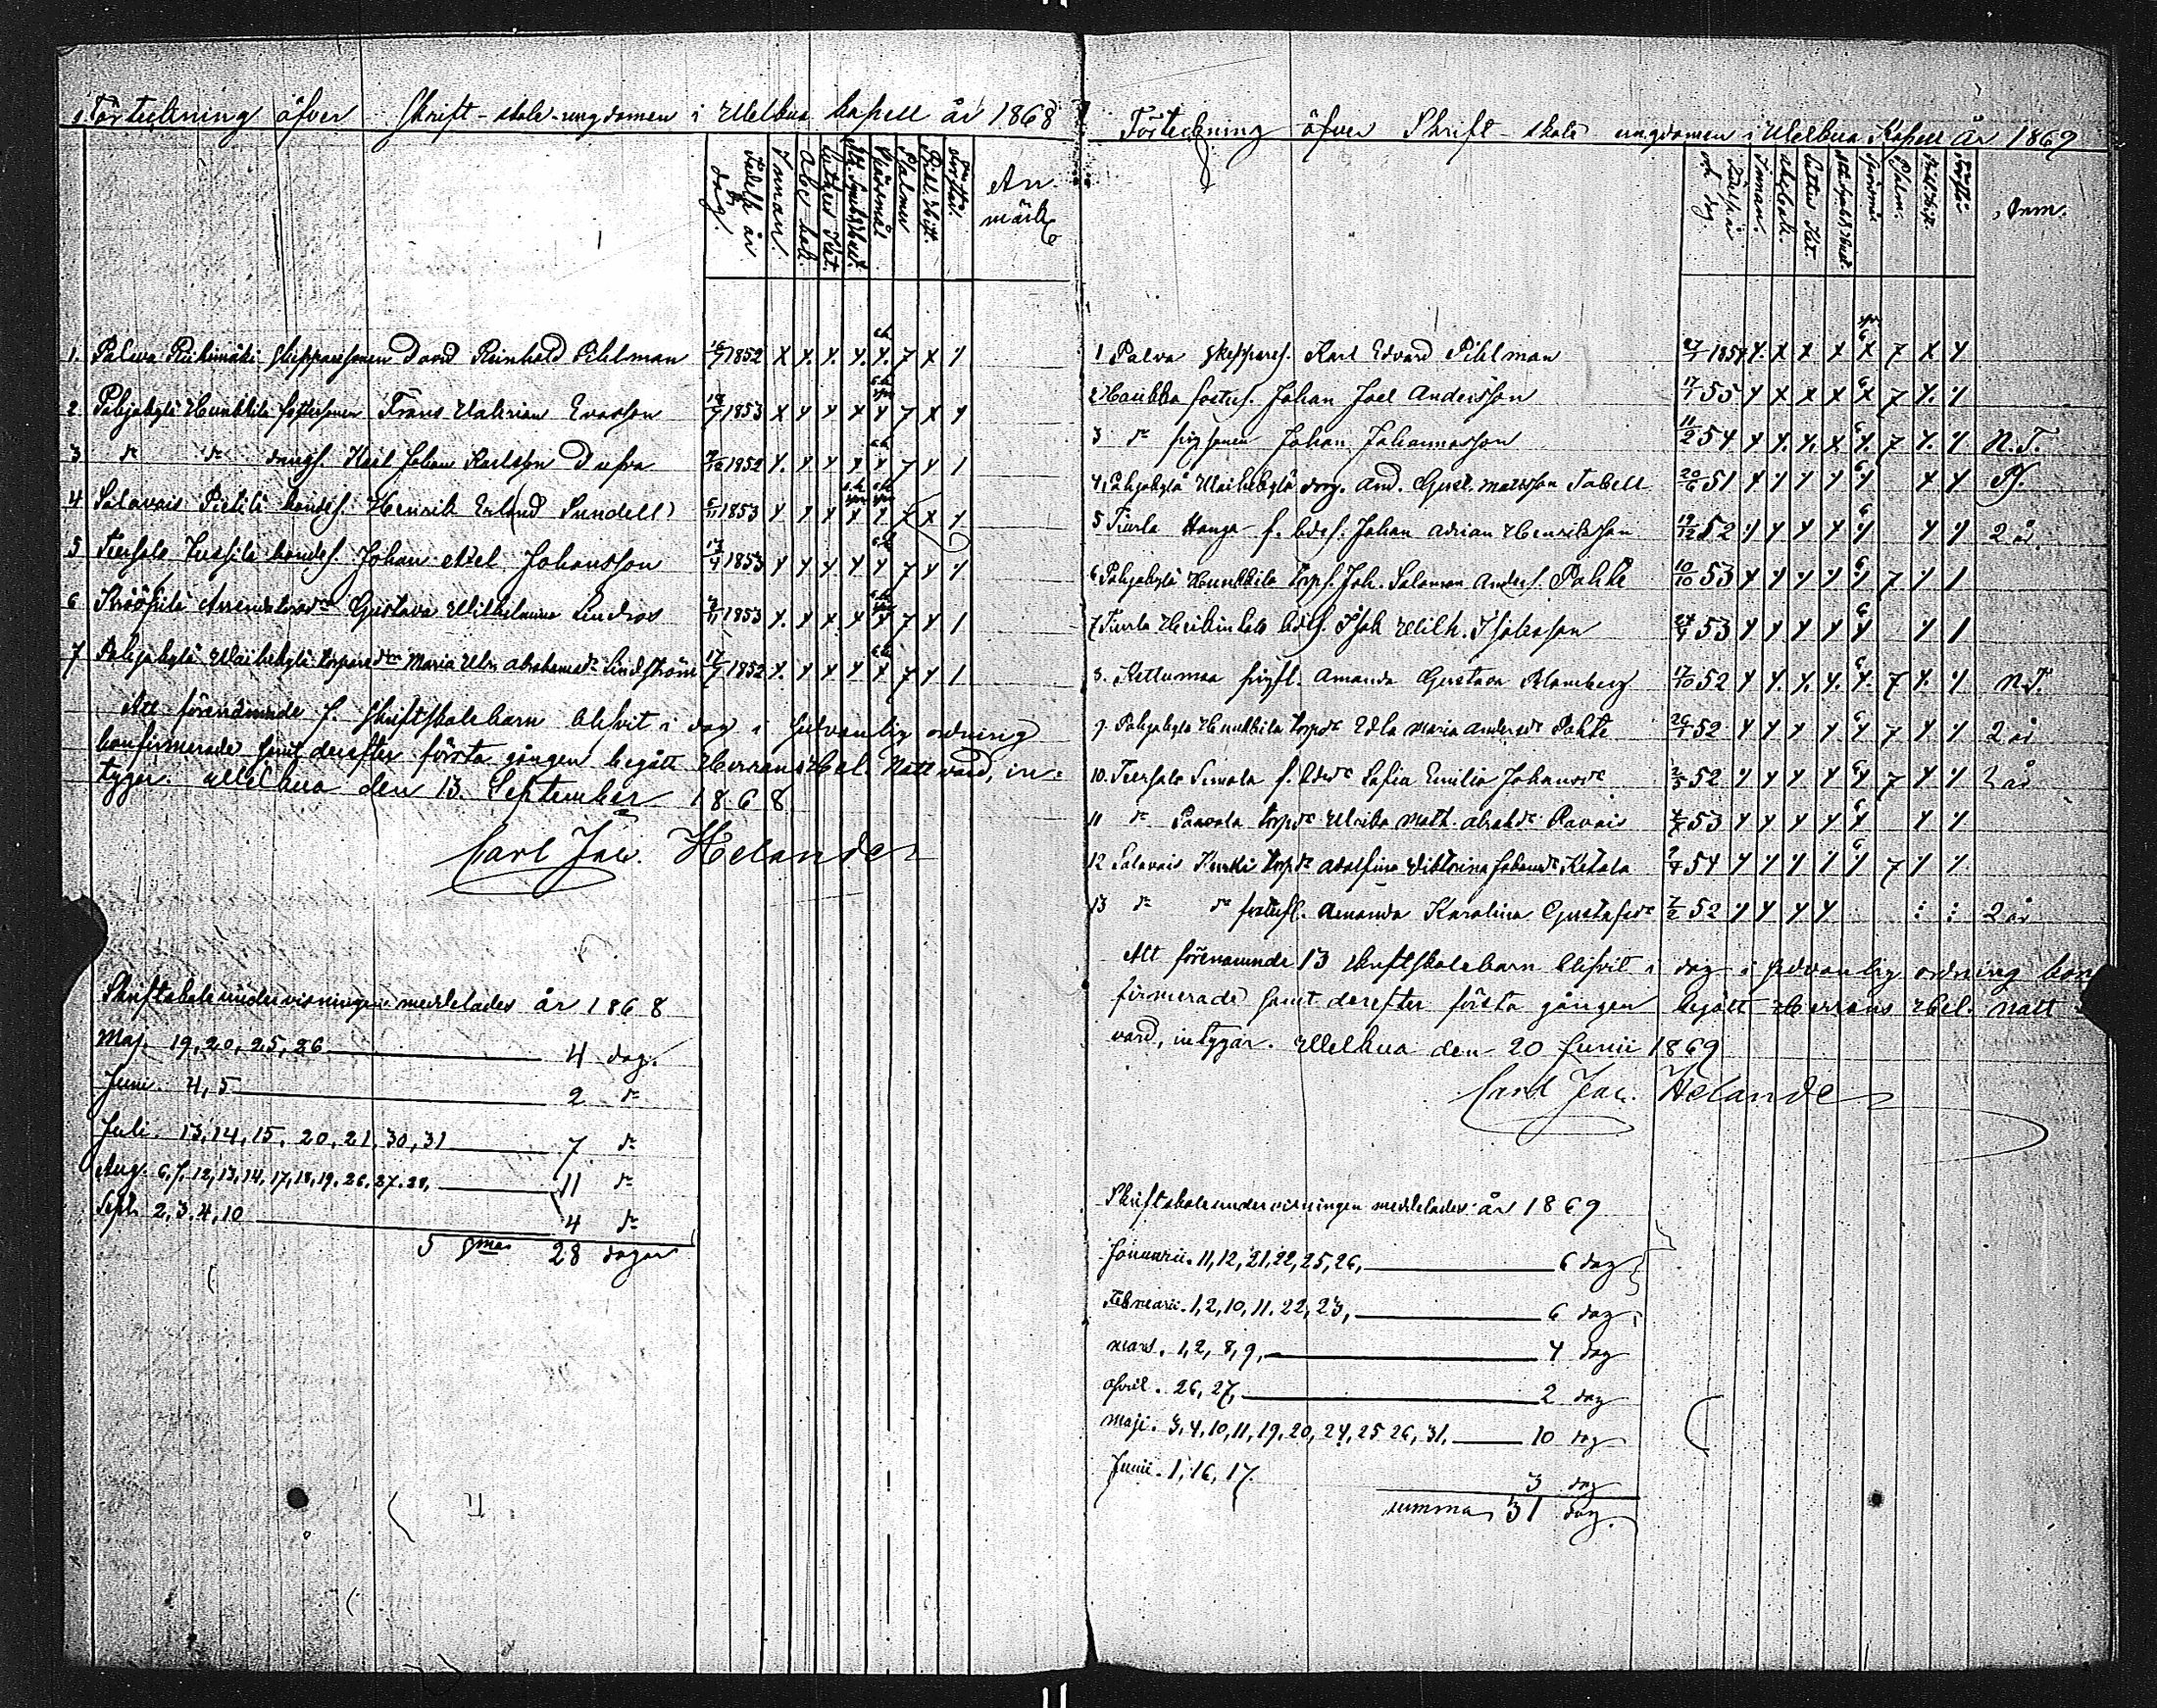 Förteckning öfver Skrift-skole-ungdomen i Welkua kapell år 1868
Födelse år och dag.
Innan.
Abc bok.
Lutheri Kat.
Spörsmål
Psalmer
Bibl. Hist.
Förstår.
An-
märk
1. Palva Riihimäki skepparesonen David Reinhold Pihlman 16/9 1852 x x x x x 7 x x
2 Pohjakylä Hunkkila Frans Valerian Evasson 18/9 1853 x x x x x 7 x x
3 do do Karl Johan Karlsson Dufva 1852 x x x x x 7 x x
4 Salavais Pietilä bondes. Henrik Erland Sundell 6/11 1853 x x x x x 7 x x
5 Teersalo Jussila bondes. Johan Axel Johansson 13/4 1853 x x x x x 7 x x
6 Krööpilä Arrendatorsdr Gustava Wilhelmina Lindros 1853 x x x x x 7 x x
7 Pohjakylä Waihekylä torparedr Maria Ulr. Abrahamsdr Lindström 17/7 1852 x x x x x 7 x x
Att förenämnde 7. skriftskolebarn blifvit i dag i sedvanlig ordning
konfirmerade samt derefter första gången begått Herrans Hel. Nattvard, in-
tygar. Welkua den 13 September 1868
Carl Jac. Helander
Skriftskoleundervisningen meddelades år 1868
Maj. 19, 20, 25, 26 4 dag.
Juni. 4, 5 2 do
Juli. 13, 14, 15, 20, 21, 30, 31 7 do
Aug. 6, 7, 12, 13, 14, 17, 18, 19, 26, 27, 28, 11 do
Sept. 2, 3, 4, 10 4 do
Sma 28 dagar
Förteckning öfver Skrift-skole ungdomen i Welkua Kapell år 1869
Födelse år och dag.
Innan.
Abc bok.
Luther Kat.
Spörsmål
Psalm.
Bibl. Hist.
Förstår
Anm.
1 Palva skeppares. Karl Edvard Pihlman 1854 x x x x x 7 x x
2 Haukka Johan Joel Andersson 17/7 55 x x x x x 7 x x
3 do Johan Johannesson 11/2 54 x x x x x 7 x x N.T.
4, Pohjakylä Waihekylä And. Gust. Mattsson Tabell 20/6 51 x x x x x x x
5 Tiurla Hanga Johan Adrian Henriksson 19/12 52 x x x x x x x 2 år.
6 Pohjakylä Hunkkila torps. Joh. Salomon Anders. Pahte 10/10 53 x x x x x 7 x x
7 Tiurla Heikinkalo Isak Wilh. Isaksson 24/4 53 x x x x x x x
8. Kettumaa Amanda Gustava Blomberg 17/10 52 x x x x x 7 x x N.T.
9. Pohjakylä Hunkkila torpdr Edla Maria Andersdr Pahte 26/1 52 x x x x x 7 x x 2 år
10. Teersalo Simola Sofia Emilia Johansdr 52 x x x x x 7 x x 2 år
11 do Paavola torpdr Ulrika Math. Abrahdr Pavais 53 x x x x x x x
12 Salavais Kurki torpdr Adolfina Viktorina Johansdr Ketala 54 x x x x x 7 x x
13 do do Amanda Karolina Gustafsdr 7/2 52 x x x x 2 år
Att förenämnde 13 skriftskolebarn blifvit i dag i sedvanlig ordning kon
firmerade samt derefter första gången begått Herrans Hel. Natt
vard, intygar. Welkua den 20 Junii 1869
Carl Jac. Helander
Skriftskoleundervisningen meddelades år 1869
Januarii. 11, 12, 21, 22, 25, 26, 6 dag
Februarii. 1, 2, 10, 11, 22, 23, 6 dag
Mars. 1, 2, 8, 9, 4 dag
April. 26, 27, 2 dag
Maji. 3, 4, 10, 11, 19, 20, 24, 25 26, 31, 10 dag
Junii. 1, 16, 17. 3 dag
summa 31 dag.